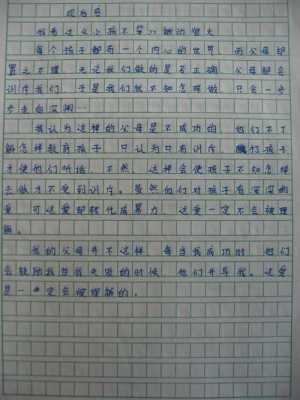 观后感
我看过《小孩不笨》感动很大
每个孩子都有一个内心的世界 而父母却
置之不理 无论我们做的是否正确 父母都会
训斥我们 于是我们就不知怎样做 只会一步
步走向深渊…
我认为这样的父母是不成功的 他们不了
解怎样教育孩子 只认为只有训斥 孩子
才使他们听话 不然 这样会使孩子不知怎样
去做才不受到训斥。虽然他们对孩子有深深的
爱 可这爱却转化成暴力 这爱一定不会被理
解。
我的父母并不这样 每当我成功时 他们
会鼓励我当我失败的时候 他们开导我。这爱
是一定会被理解的。